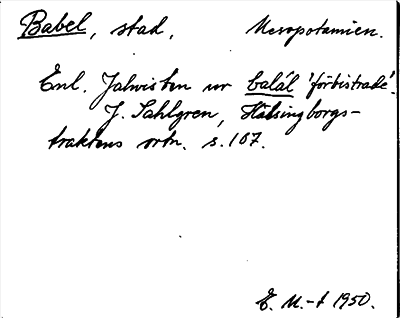 Babel, stad, Mesopotamien.
Enl. Jahvisten ur balál 'förbistrade'.
J. Sahlgren, Hälsingborgs-
traktens ortn. s. 107.
E. M.-t 1950.